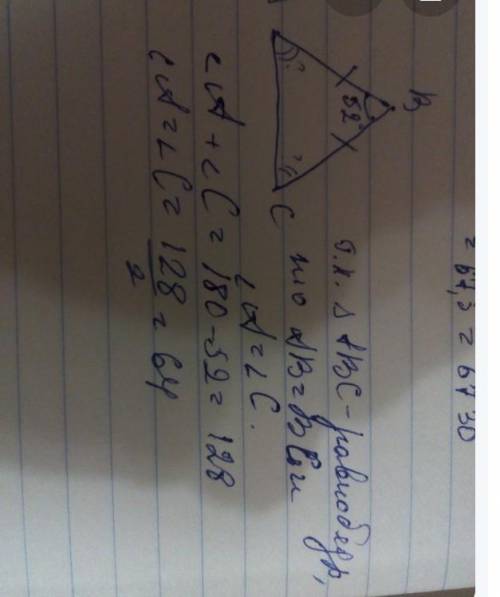 = 67,5 = 67°30
B
52°
C
т.к. Δ ABC - равнобедр,
то AB = BC и
∠A = ∠C.
∠A + ∠C = 180 - 52 = 128
∠A = ∠C = 128/2 = 64